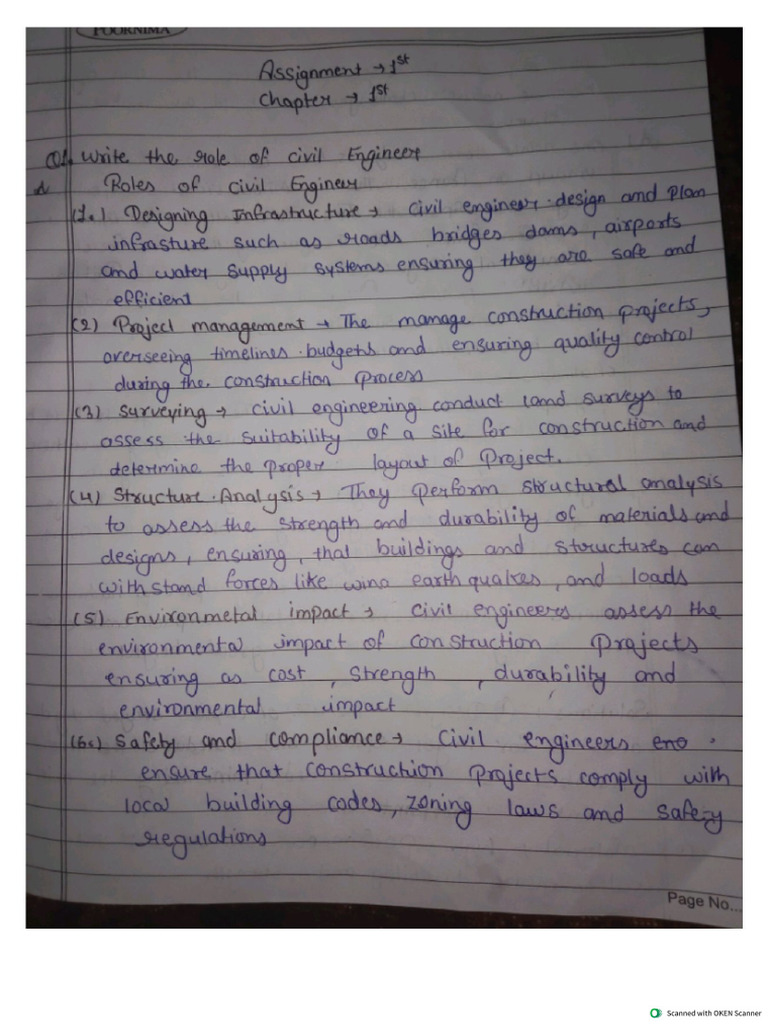 POORNIMA
Assignment → 1st
Chapter → 1st
Q1. Write the role of civil Engineer
A Roles of civil Engineer
(1.) Designing Infrastructure → civil engineer design and plan
infrasture such as roads bridges dams, airports
and water supply systems ensuring they are safe and
efficient
(2) Project management → The manage construction projects,
overseeing timelines budgets and ensuring quality control
during the construction process
(3) Surveying → civil engineering conduct land surveys to
assess the suitability of a site for construction and
determine the proper layout of project.
(4) Structure Analysis → They perform structural analysis
to assess the strength and durability of materials and
designs, ensuring, that buildings and structures can
withstand forces like wind earthquakes, and loads
(5) Environmetal impact → civil engineers assess the
environmental impact of construction projects
ensuring as cost, strength, durability and
environmental impact
(6.) Safety and compliance → civil engineers eno
ensure that construction projects comply with
local building codes, zoning laws and safety
regulations
Page No...
Scanned with OKEN Scanner